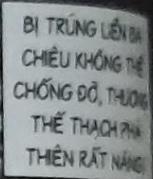 BỊ TRÚNG LIỀN BA
CHIÊU KHÔNG THỂ
CHỐNG ĐỠ, THƯƠNG
THẾ THẠCH PHÁ
THIÊN RẤT NẶNG